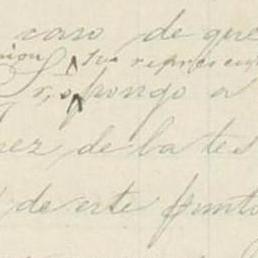 caso de que
nion sus represent
Sr, opongo a
nez de la tes
de este punto